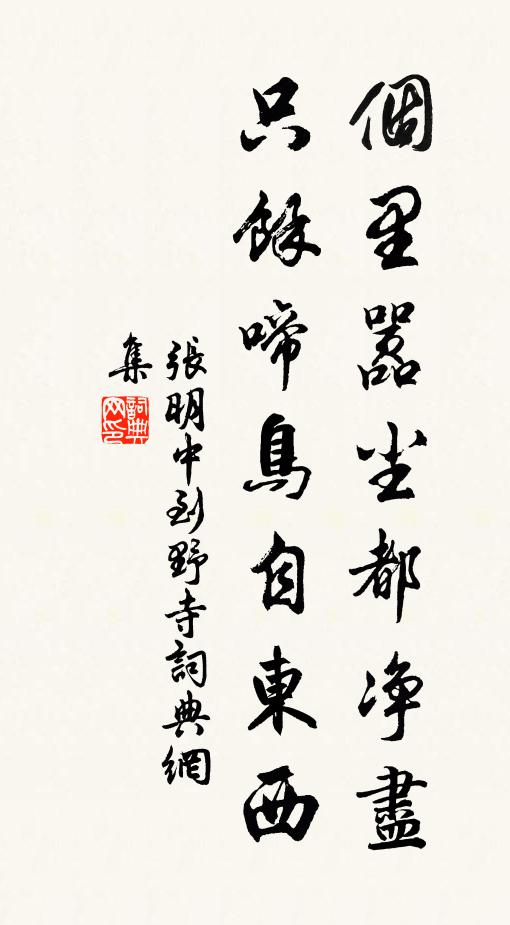 個里嚣尘都净盡
只餘啼鳥自東西
張明中到野寺詞典網
集
詞典网印